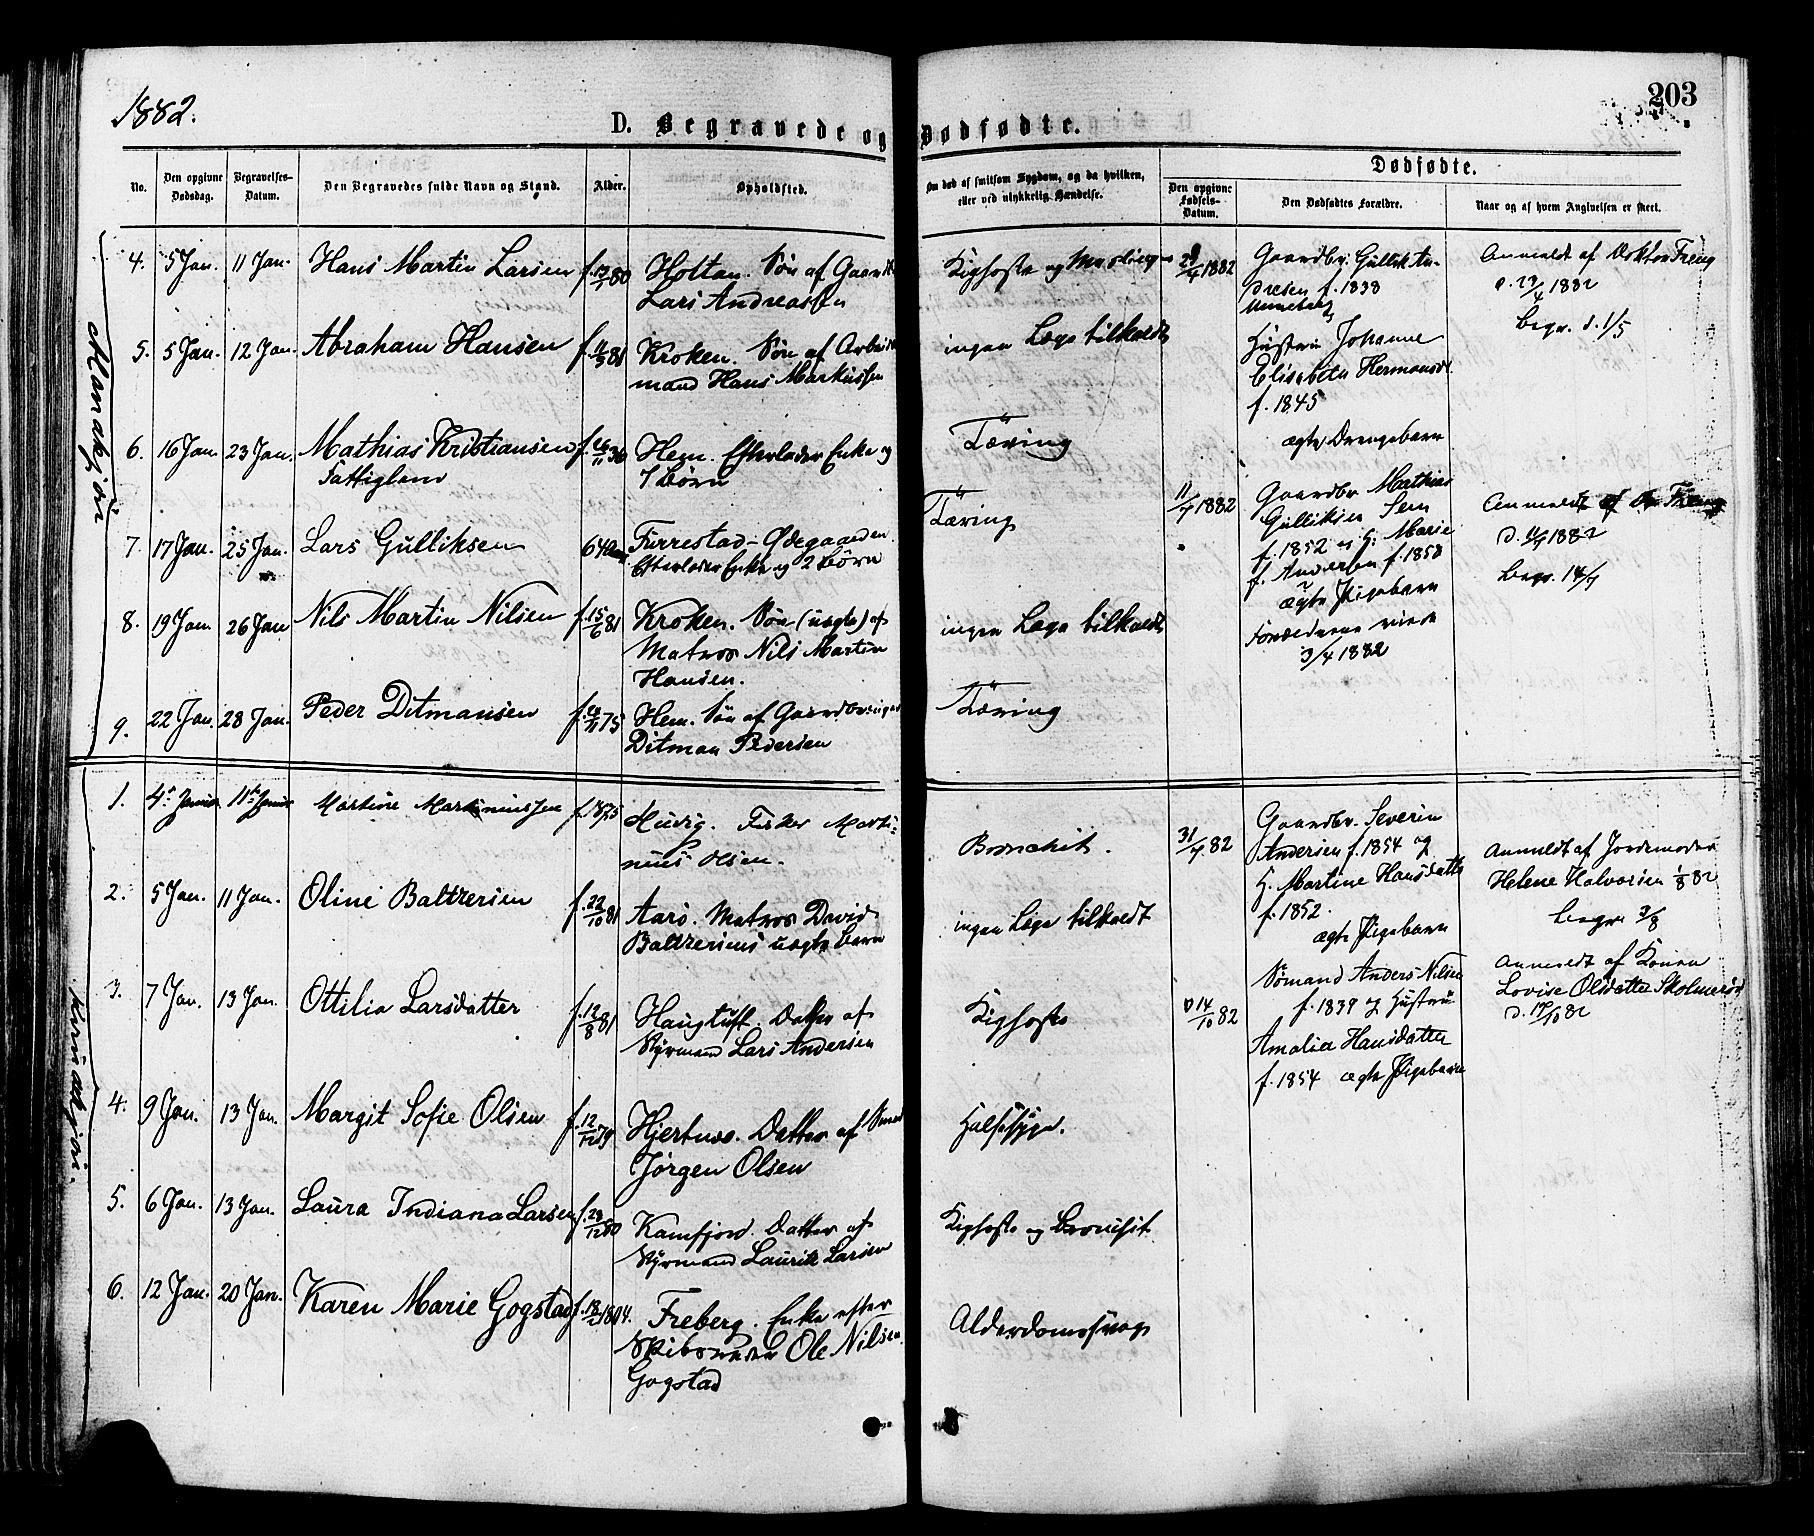 1882.
203
D. Begravede og Dødfødte.
No.
Den opgivne Dødsdag.
Begravelses-Datum.
Den Begravedes fulde Navn og Stand.
Alder.
Opholdsted.
Om død af smitsom Sygdom, og da hvilken,
eller ved ulykkelig Hændelse.
Dødfødte.
Den opgivne Fødsels-Datum.
Den Dødfødtes Forældre.
Naar og af hvem Angivelsen er skeet.
Mandkjön
4. 5 Jan. 11 Jan. Hans Martin Larsen f. 80 Holtan. Søn af Gaardb.
Lars Andreassen
Kighoste og
5. 5 Jan. 12 Jan. Abraham Hansen f. 81 Kroken. Søn af Arbeids
mand Hans Markussen
ingen Læge tilkaldt
6. 16 Jan. 23 Jan. Mathias Kristiansen f. 26/11 36 Hem. Efterlader Enke og
Fattiglem 7 Børn
Tæring
7. 17 Jan. 25 Jan. Lars Gulliksen 64 Aar Furrestad-Ødegaarden
Efterlader Enke og 2 Børn
Tæring
8. 19 Jan. 26 Jan. Nils Martin Nilsen f. 15/6 81 Kroken. Søn (uægte) af
Matros Nils Martin
Hansen.
ingen Læge tilkaldt
9. 22 Jan. 28 Jan. Peder Ditmansen f. 75 Hem. Søn af Gaardbruger
Ditman Pedersen
Tæring
Gaardbr. Gullik An-
dresen f. 1838
Unneberg
Hustru Johanne
Elisabeth Hermansd.
f. 1845
ægte Drengebarn
Anmeldt af Doktor Freng
d. 29/4 1882
begr. d. 1/5
11/7 1882
Gaardbr. Mathias
Gulliksen Sem
f. 1852 og H. Marie
f. Andersen f. 1858
ægte Pigebarn
Forældrene viede
3/4 1882
Anmeldt af Dr Freng
d. 11/7 1882
begr. 14/7
Kvindekjön.
1. 4de Januar 11te Januar Martine Martinussen f. 1875 Huvig. Fisker Marti-
nius Olsen.
Bronchit.
2. 5 Jan. 11 Jan. Oline Baltzersen f. 22/10 81 Aarø. Matros David
Baltzersens uægte Barn
ingen Læge tilkaldt
3. 7 Jan. 13 Jan. Ottilia Larsdatter f. 12/8 81 Haugtuft. Datter af
Styrmand Lars Andersen
Kighoste
4. 9 Jan. 13 Jan. Margit Sofie Olsen f. 12/12 79 Hjertnes. Datter af Smed
Jørgen Olsen
Halssyge.
5. 6 Jan. 13 Jan. Laura Indiana Larsen f. 29/12 80 Kamfjord. Datter af
Styrmand Lauritz Larsen
Kighoste og Bronchit.
6. 12 Jan. 20 Jan. Karen Marie Gogstad f. 18/2 1804. Freberg. Enke efter
Skibsreder Ole Nilsen
Gogstad
Alderdomssvag
31/7 82
Gaardbr. Severin
Andersen f. 1854 og
H. Martine Hansdatter
f. 1852.
ægte Pigebarn
Anmeldt af Jordemoder
Helene Halvorsen 1/8 82
begr. 3/8
14/10 82
Sømand Anders Nilsen
f. 1839 og Hustru
Amalia Hansdatter
f. 1854 ægte Pigebarn
Anmeldt af Konen
Lovise Olsdatter Skolmerød
d. 17/10 82